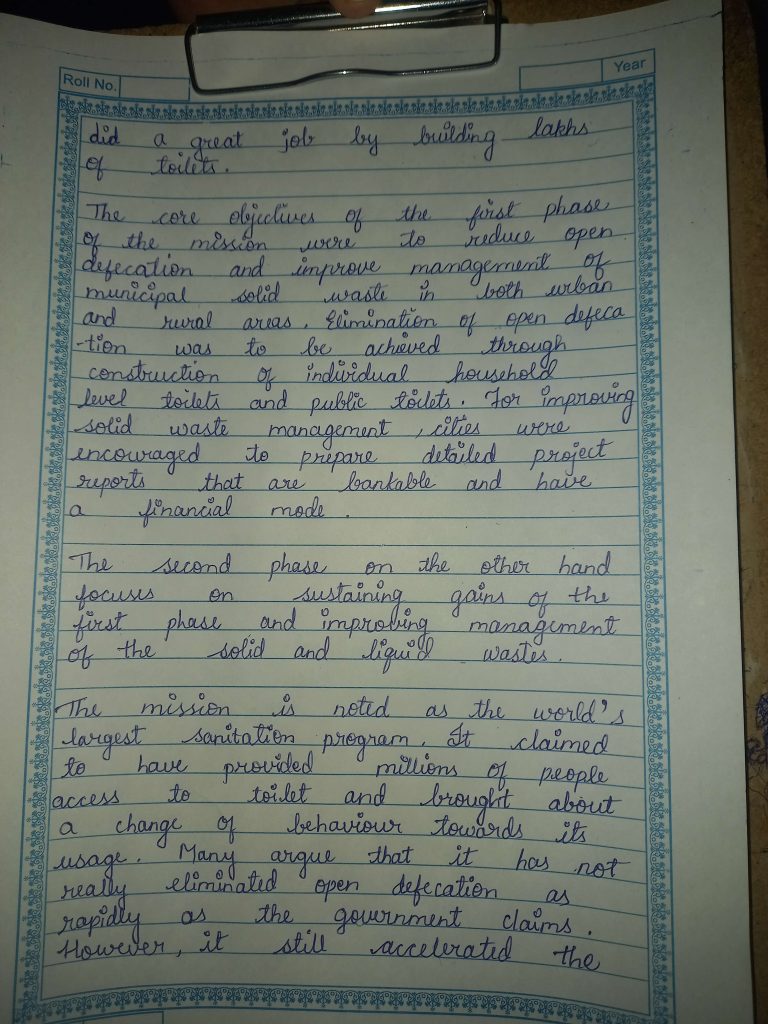 Roll No.
Year
did a great job by building lakhs
of toilets.
The core objectives of the first phase
of the mission were to reduce open
defecation and improve management of
municipal solid waste in both urban
and rural areas. Elimination of open defeca
-tion was to be achieved through
construction of individual household
level toilets and public toilets. For improving
solid waste management, cities were
encouraged to prepare detailed project
reports that are bankable and have
a financial mode.
The second phase on the other hand
focuses on sustaining gains of the
first phase and improving management
of the solid and liquid wastes.
The mission is noted as the world's
largest sanitation program. It claimed
to have provided millions of people
access to toilet and brought about
a change of behaviour towards its
usage. Many argue that it has not
really eliminated open defecation as
rapidly as the government claims.
However, it still accelerated the